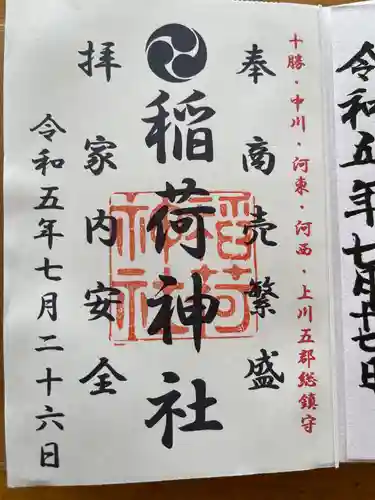 十勝・中川・河東・河西・上川五郡総鎮守
奉商売繁盛
稲荷神社
稲荷神社
拝家内安全
令和五年七月二十六日
令和五年七月十七日